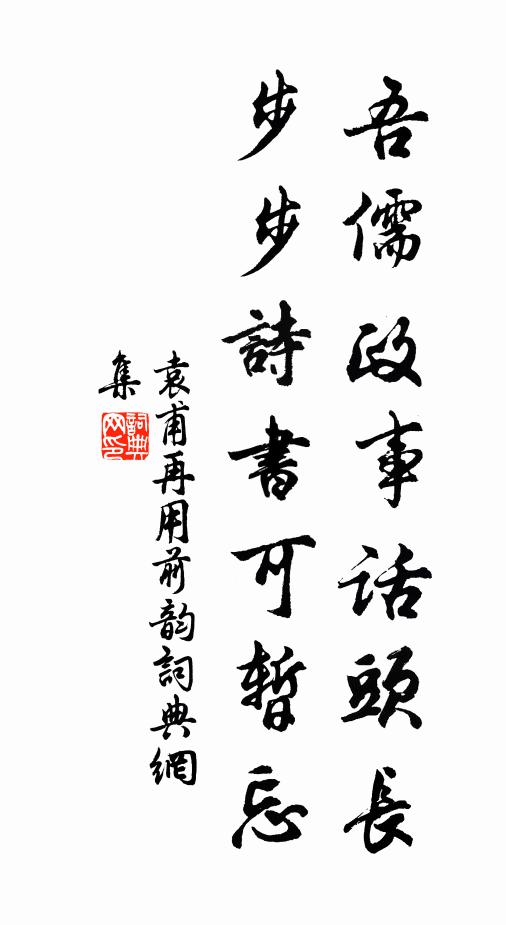 吾儒政事話頭長
步步詩書可暫忘
袁甫再用前韵詞典網
集
詞典
网印